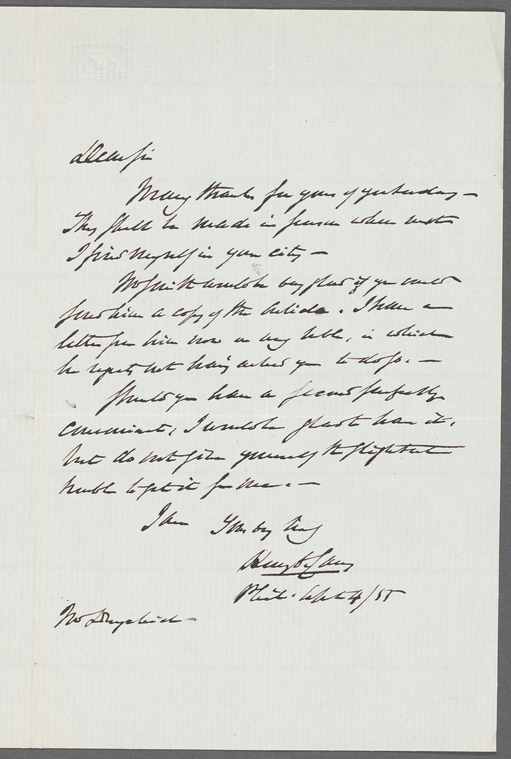 Dear Sir
Many thanks for yours of yesterday —
They shall be made in person when next
I find myself in your city —
Mr Smith would be very glad if you could
send him a copy of the Article. I have a
letter from him now on my table, in which
he regrets not having asked you to do so. —
Should you have a second perfectly
convenient, I would be glad to have it,
but do not give yourself the slightest
trouble to get it for me. —
I am Yours very truly
Henry C Carey
Phil. Sept 4/55